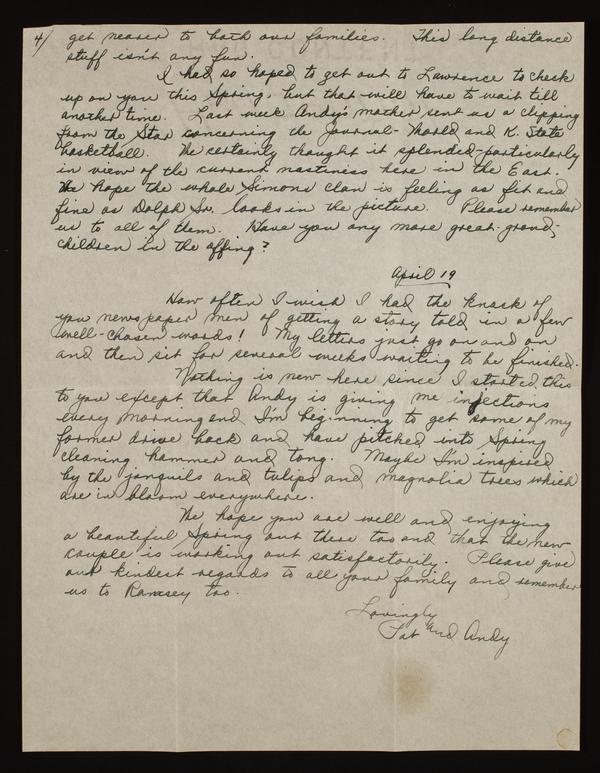 4/ get nearer to both our families. This long distance
stuff isn't any fun.
I had so hoped to get out to Lawrence to check
up on you this Spring, but that will have to wait till
another time. Last week Andy's mother sent us a clipping
from the Star concerning the Journal-World and K. State
basketball. We certainly thought it splendid-particularly
in view of the current nastiness here in the East.
We hope the whole Simons clan is feeling as fit and
fine as Dolph Sr. looks in the picture. Please remember
us to all of them. Have you any more great-grand-
children in the offing?
April 19
How often I wish I had the knack of
you newspaper men of getting a story told in a few
well-chosen words! My letters just go on and on
and then sit for several weeks waiting to be finished.
Nothing is new here since I started this
to you except that Andy is giving me injections
every morning and I'm beginning to get some of my
former drive back and have pitched into Spring
cleaning hammer and tong. Maybe I'm inspired
by the jonquils and tulips and magnolia trees which
are in bloom everywhere.
We hope you are well and enjoying
a beautiful Spring out there too and that the new
couple is working out satisfactorily. Please give
our kindest regards to all your family and remember
us to Ramsey too.
Lovingly
Pat and Andy